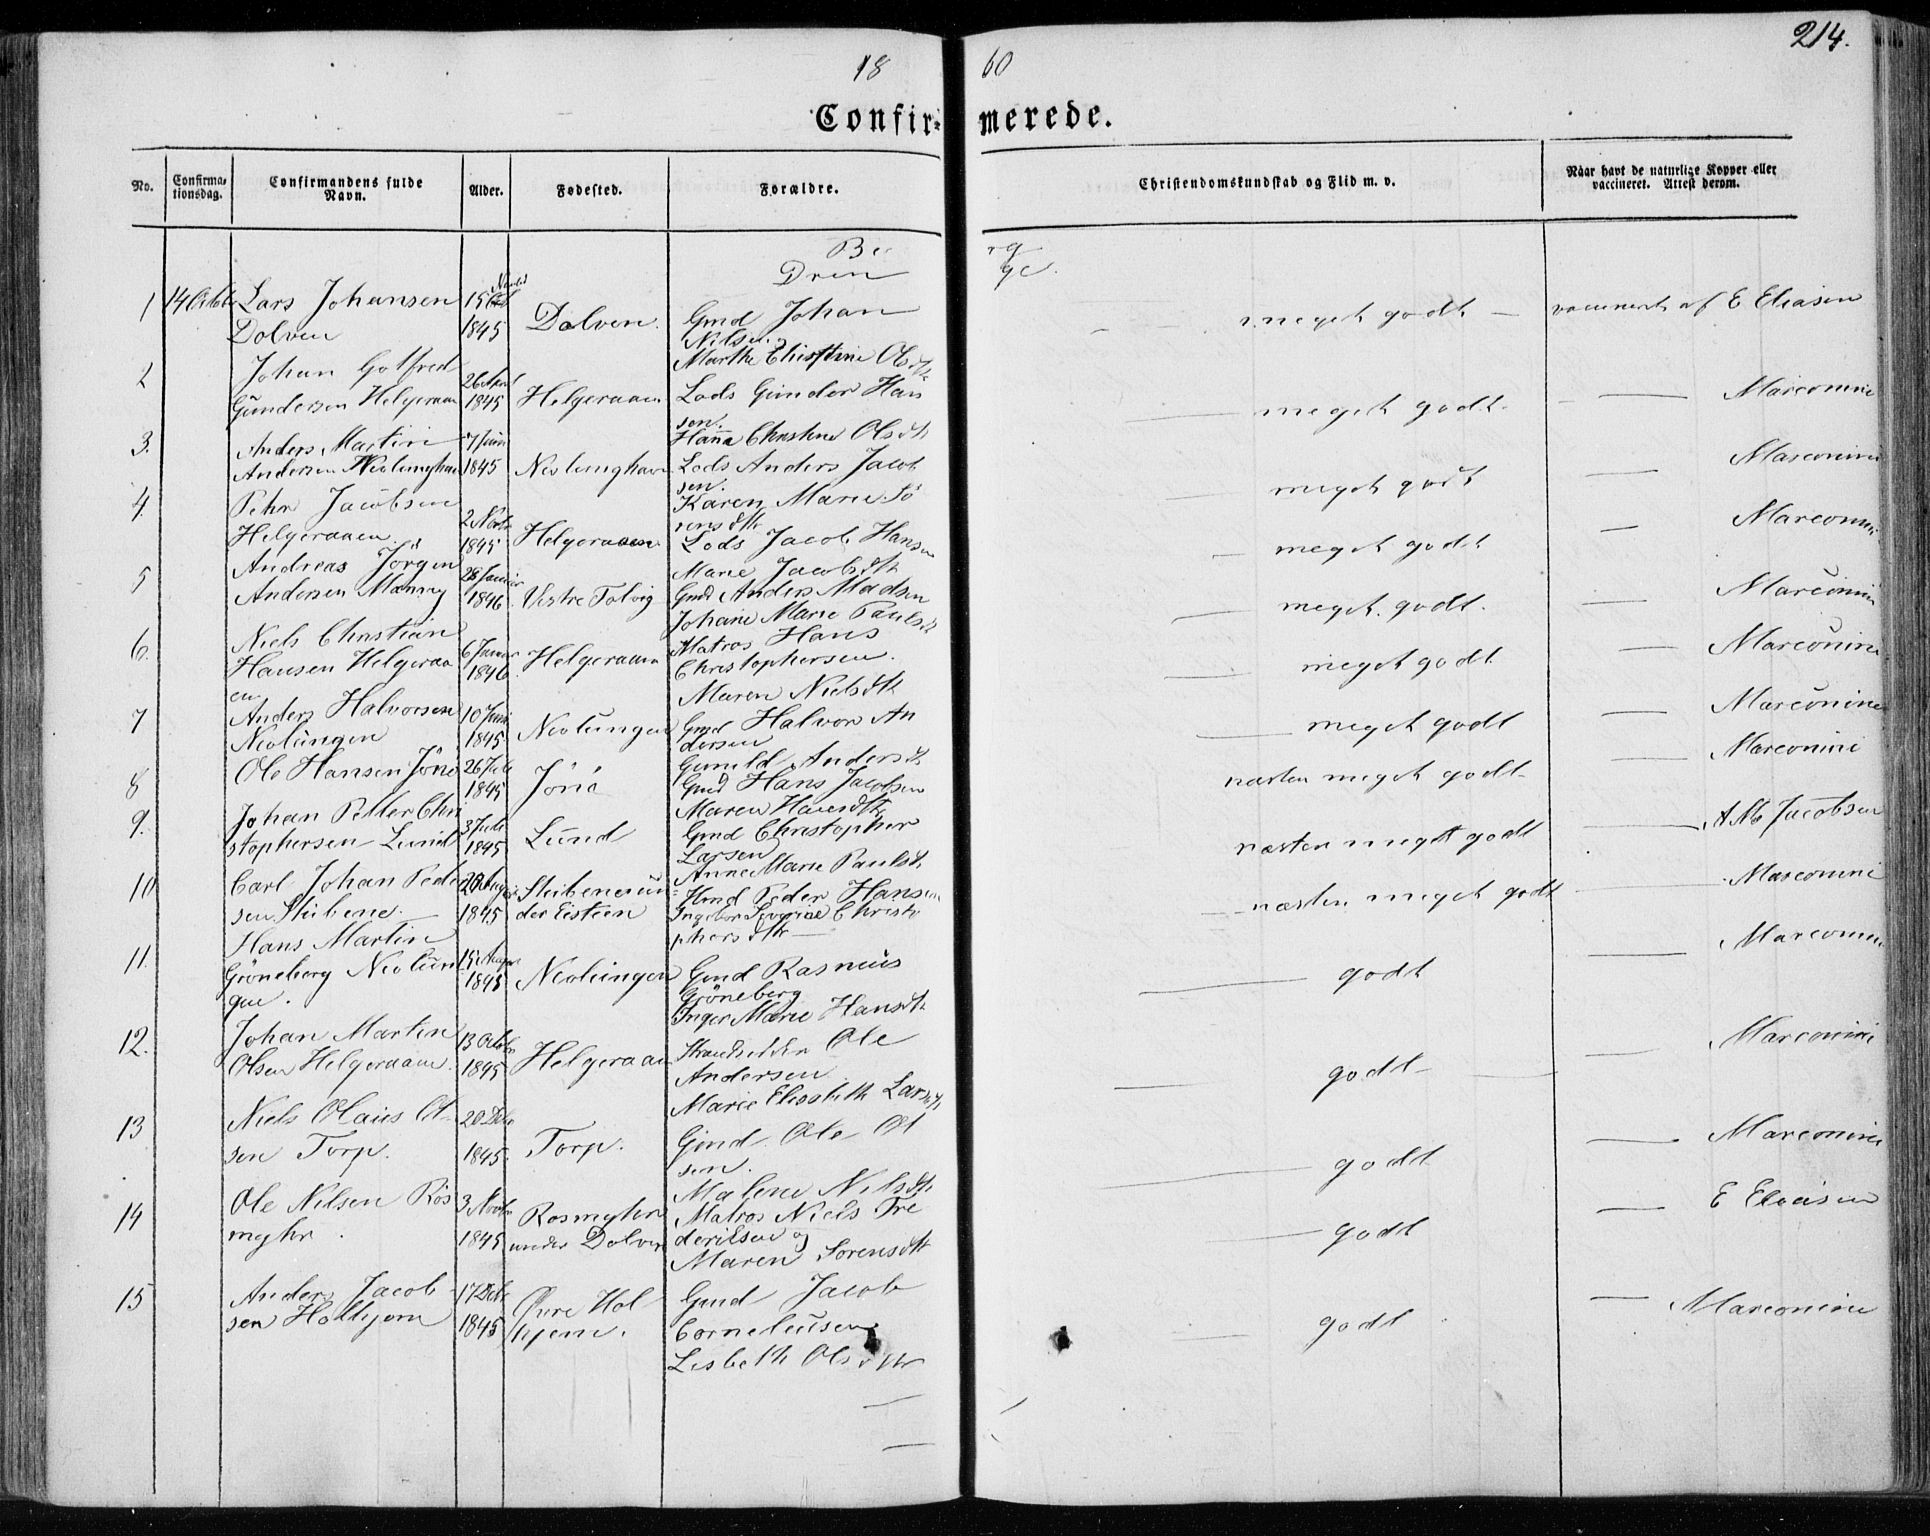 214.
18 60
Confir- merede.
No.
Confirma-
tionsdag.
Confirmandens fulde
Navn.
Alder.
Fødested.
Forældre.
Christendomskundskab og Flid m. v.
Naar havt de naturlige Kopper eller
vaccineret. Attest derom.
Be rg
Dren ge.
1 14 Octob Lars Johansen
Dolven
15
1845
Dolven.
Gmd Johan
Nilsen og
Marthe Christine Olsdtr
meget godt
vaccineret af E Eliasen
2
Johan Gotfred
Gundersen Helgeraaen
26 April
1845
Helgeraaen
Lods Gunder Han
sen.
Hanna Christine Olsdtr
meget godt.
Marconini
3.
Anders Martin
Andersen Nevlunghavn
7 Juni
1845
Nevlunghavn
Lods Anders Jacob
sen.
Karen Marie Sö
rensdtr
meget godt
Marconini
4.
Pehr Jacobsen
Helgeraaen.
2 Novbr
1845
Helgeraaen
Lods Jacob Hansen
Marie Jacobsdtr
meget godt
Marconini
5
Andreas Jörgen
Andersen Manvig
28 Januar
1846
Vestre Tolvig
Gmd Anders Madsen
Johane Marie Paulsdtr
meget godt.
Marconini
6.
Niels Christian
Hansen Helgeraa
en
6 Januar
1846
Helgeraaen
Matros Hans
Christophersen.
Maren Nielsdtr
meget godt
Marconini
7
Anders Halvorsen
Nevlungen
10 Juni
1845
Nevlungen
Gmd Halvor An
dersen
Gunild Andersdtr
meget godt
Marconini
8
Ole Hansen Jöne
26 Juli
1845
Jöne
Gmd Hans Jacobsen
Maren Hansdtr
næsten meget godt
Marconini
9.
Johan Petter Chri
stophersen Lund
3 Juli
1845
Lund
Gmd Christopher
Larsen
Anne Marie Paulsdtr
næsten meget godt
A M Jacobsen
10
Carl Johan Peder
sen Stubene.
1845
Stubene un
der Eisteen
Hmd Peder Hansen
Ingeborg Severine Christo
phersdtr
næsten meget godt
Marconini
11.
Hans Martin
Gröneberg Nevlun
gen.
15 August
1845
Nevlungen
Gmd Rasmus
Gröneberg
Inger Marie Hansdtr
godt
Marconini
12.
Johan Martin
Olsen Helgeraaen.
13 Octobr
1845
Helgeraaen
Strandsidder Ole
Andersen
Marie Elisabeth Larsdtr
godt
Marconini
13
Niels Olaus Ol-
sen Torp.
20 Decbr
1845.
Torp.
Gmd. Ole Ol
sen.
Malene Nilsdtr
godt
Marconini
14
Ole Nilsen Rös
myhr.
3 Novbr
1845
Rosmyhr
under Dolven
Matros Niels Fre
deriksen og
Maren Sorensdtr
godt
E Eliasen
15
Anders Jacob
sen Holtejem
17 Decbr
1845
Övre Hol
tejem.
Gmd Jacob
Corneliusen
Lisbeth Olsdtr
godt
Marconini